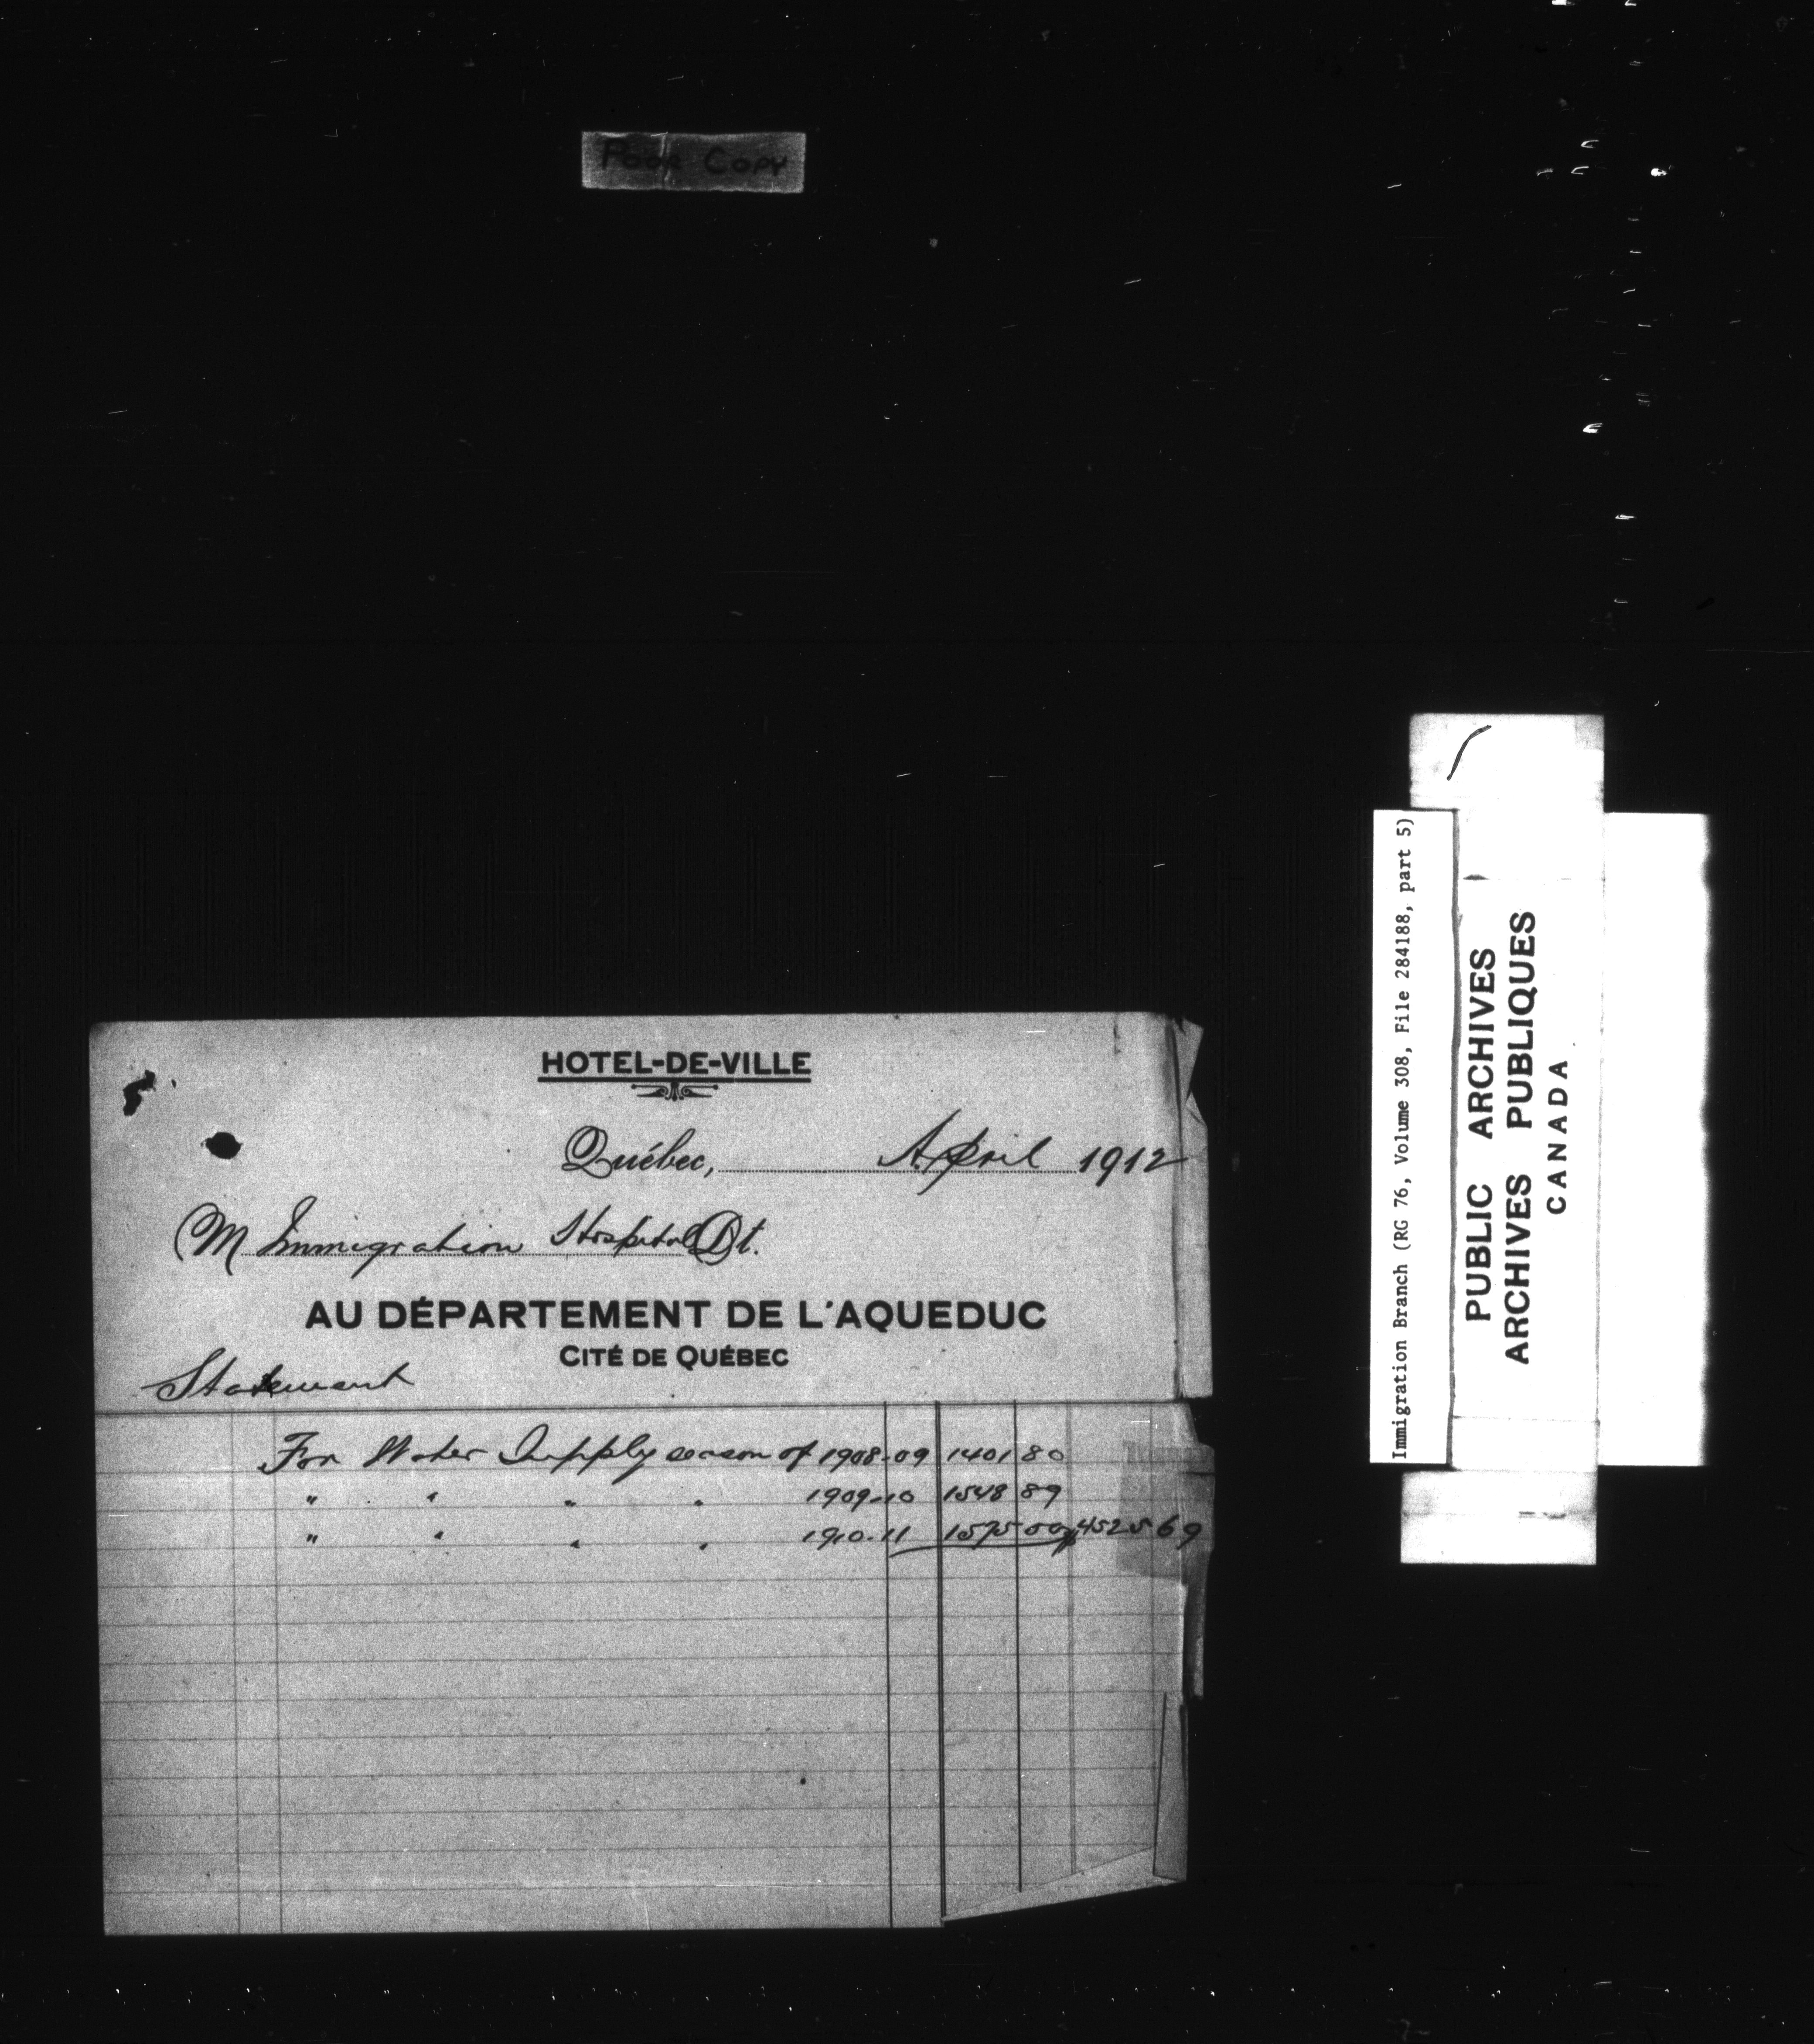 POOR COPY
HOTEL-DE-VILLE
Québec, April 1912
M Immigration Hospital Dt.
AU DÉPARTEMENT DE L'AQUEDUC
CITÉ DE QUÉBEC
Statement
For Water Supply season of 1908-09 1401 80
" " " " 1909-10 1548 89
" " " " 1910-11 1575 00 4525 69
Immigration Branch (RG 76, Volume 308, File 284188, part 5)
PUBLIC ARCHIVES
ARCHIVES PUBLIQUES
CANADA